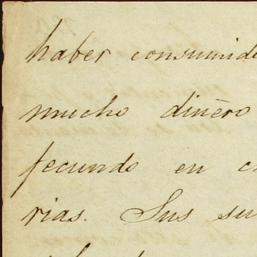 haber consumido
mucho dinero
fecundo en c
rias. Sus su